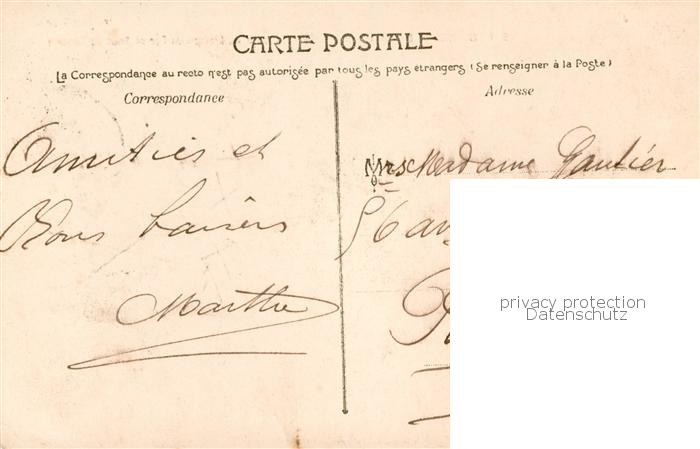 CARTE POSTALE
La Correspondance au recto n'est pas autorisée par tous les pays étrangers (Se renseigner à la Poste)
Correspondance
Amitiés et
Bons baisers
Marthe
Adresse
Madame Gautier
56 av
privacy protection
Datenschutz